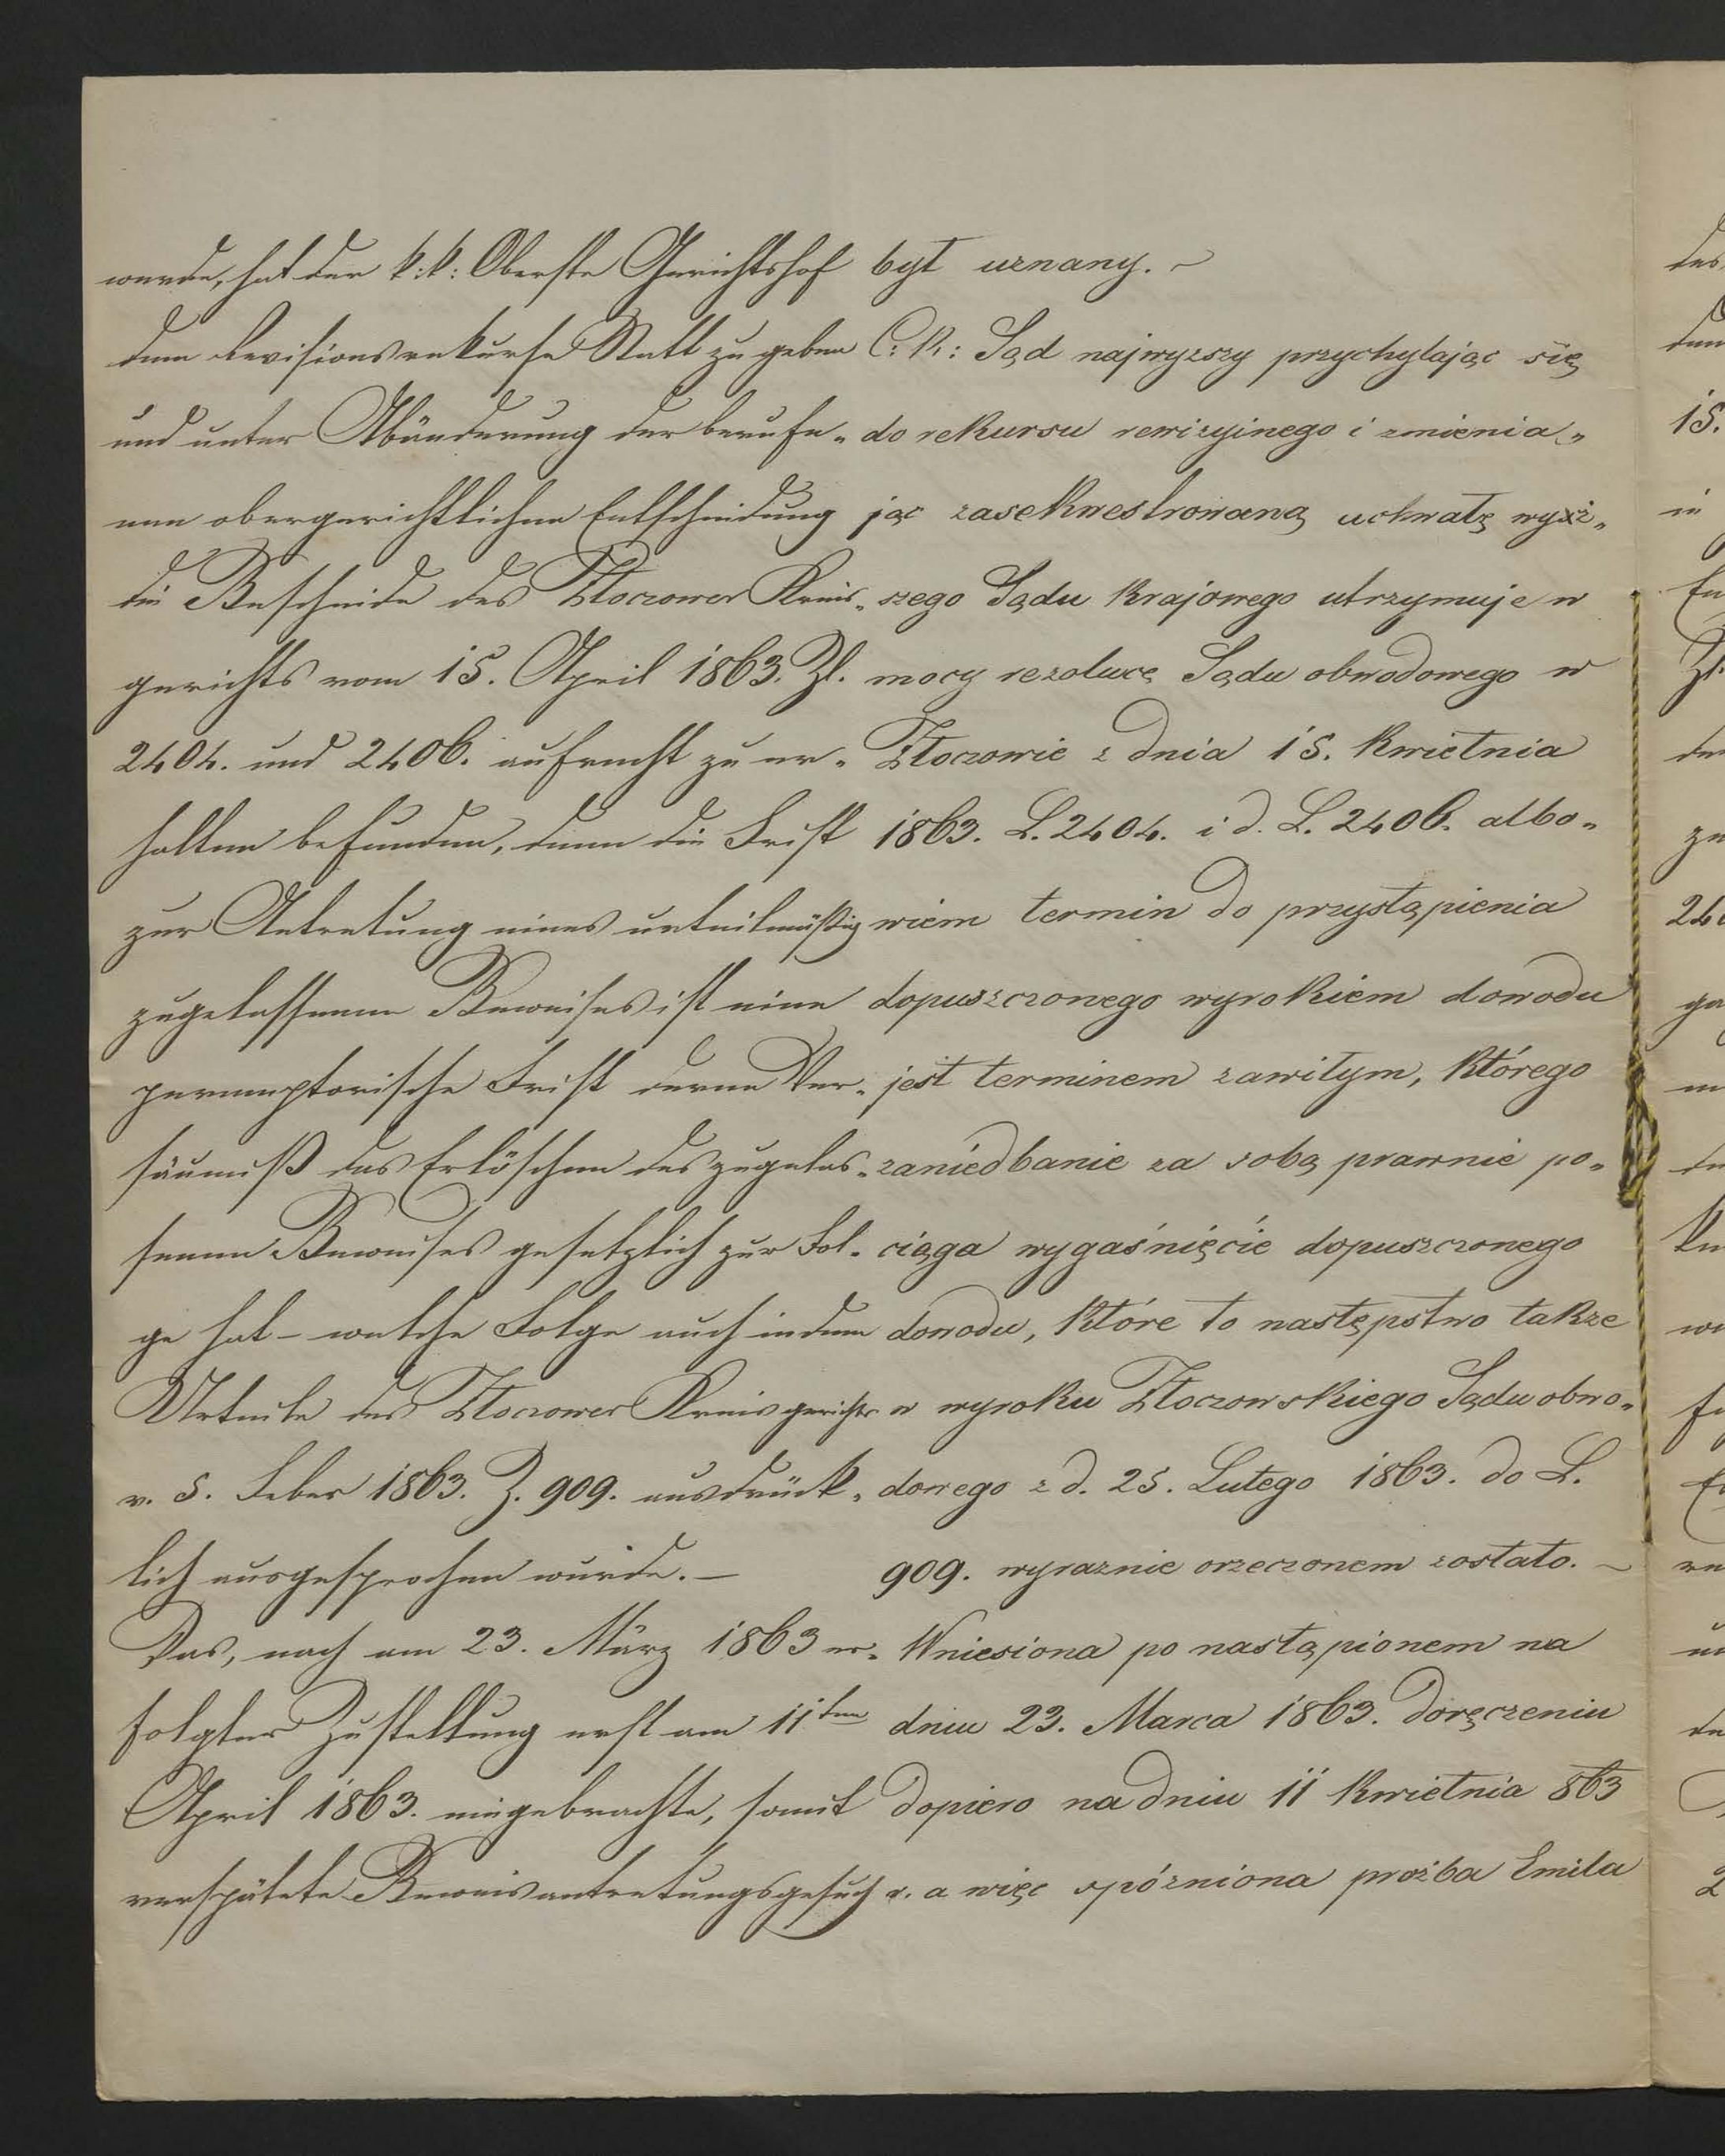 werde, hat der k: k: Oberste Gerichtshof
dem Revisionsrekurse Statt zu geben
und unter Abänderung der berufe„
nen obergerichtlichen Entscheidung
die Bescheide des Złoczower Kreis„
gerichts vom 15. April 1863. Zl.
2404. und 2406. aufrecht zu er„
halten befunden, denn die Frist
zur Antretung eines urteilmäßig
zugelassenen Beweises ist eine
peremptorische Frist deren Ver„
säumniß das Erlöschen des zugelas„
senen Beweises gesetzlich zur Fol„
ge hat – welche Folge auch in dem
Urteile des Złoczower Kreisgerichts
v. 5. Feber 1863. Z. 909. ausdrück„
lich ausgesprochen wurde. –
Das, nach am 23. März 1863 er„
folgter Zustellung erst am 11ten
April 1863. eingebrachte, somit
verspätete Beweisantretungsgesuch v.
był uznany. ~
C: K: Sąd najwyzszy przychylając się
do rekursu rewizyjnego i zmienia„
jąc zasekwestrowaną uchwałę wyż„
szego Sądu Krajowego utrzymuje w
mocy rezolucę Sądu obwodowego w
Złoczowie z dnia 15. Kwietnia
1863. L. 2404. i d. L. 2406. albo„
wiem termin do przystąpienia
dopuszczonego wyrokiem dowodu
jest terminem zawitym, którego
zaniedbanie za sobą prawnie po„
ciąga wygaśnięcie dopuszczonego
dowodu, które to następstwo takze
w wyroku Złoczowskiego Sądu obwo„
dowego z d. 25. Lutego 1863. do L.
909. wyraznie orzeczonem zostało. ~
Wniesiona po nastąpionem na
dniu 23. Marca 1863. doręczeniu
dopiero na dniu 11 Kwietnia 863
a więc spózniona prożba Emila